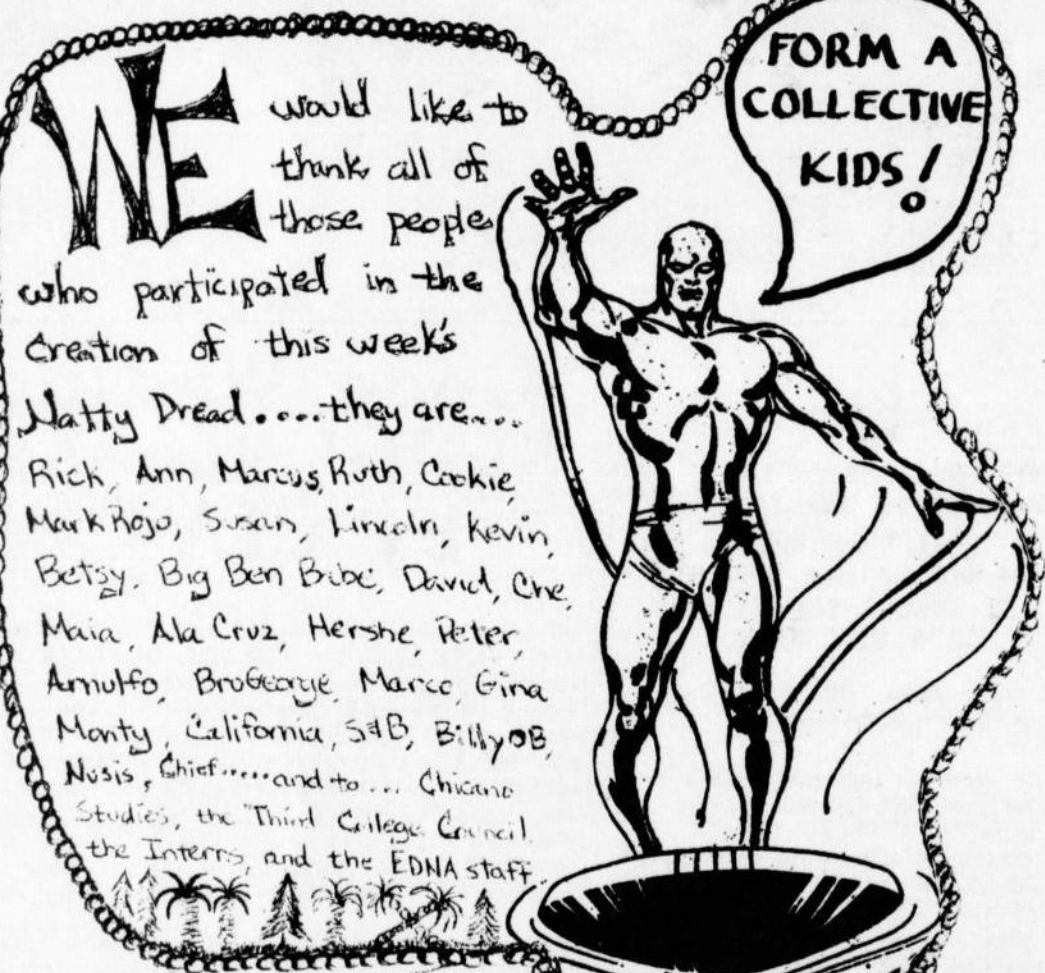 WE would like to
thank all of
those people
who participated in the
creation of this week's
Natty Dread....they are....
Rick, Ann, Marcus, Ruth, Cookie,
Mark Rojo, Susan, Lincoln, Kevin,
Betsy, Big Ben Bube, David, Che,
Maia, Ala Cruz, Hershe, Peter,
Arnulfo, BroGeorge, Marco, Gina
Monty, California, S&B, Billy OB,
Nusis, Chief.....and to... Chicano
Studies, the Third College Council,
the Interns, and the EDNA staff
FORM A
COLLECTIVE
KIDS!